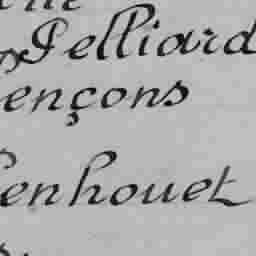 Pelliard
ençons
enhouet